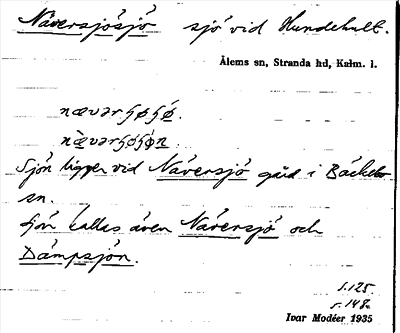 Näversjösjö sjö vid Hundehult.
Ålems sn, Stranda hd, Kalm. l.
nævərʂøʂǿ.
næ̀vərʂøʂǿn
Sjön ligger vid Näversjö gård i Bäckebo
sn.
Sjön kallas även Näversjö och
Dämpsjön.
s. 125.
s. 148.
Ivar Modéer 1935